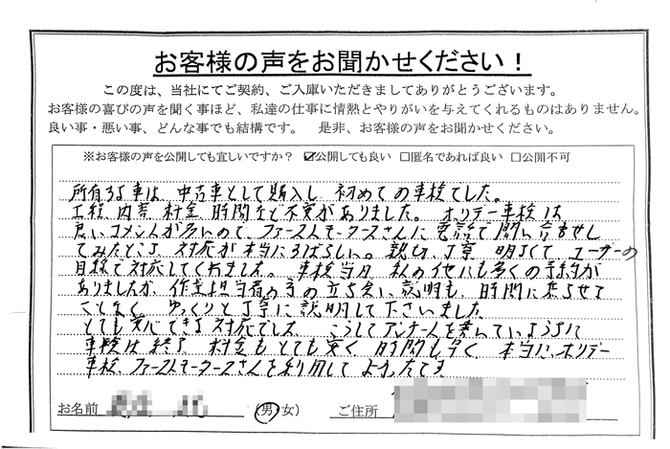 お客様の声をお聞かせください！
この度は、当社にてご契約、ご入庫いただきましてありがとうございます。
お客様の喜びの声を聞く事ほど、私達の仕事に情熱とやりがいを与えてくれるものはありません。
良い事・悪い事、どんな事でも結構です。 是非、お客様の声をお聞かせください。
※お客様の声を公開しても宜しいですか？ ☑公開しても良い ☐匿名であれば良い ☐公開不可
所有する車は 中古車として購入し 初めての車検でした。
工程 内容 料金 時間など不安がありました。 ホリデー車検は
良いコメントが多いので、ファーストモータースさんに電話で問い合わせし
てみたところ 対応が本当にすばらしい。親切、丁寧 明るくて ユーザーの
目線で対応してくれました。 車検当日 私の他にも多くの予約が
ありましたが、作業担当者の方の立ち会い説明も、時間に追らせて
ことなく ゆっくりと丁寧に説明して下さいました
とても安心できる対応でした こうしてアンケートを書いているうちに
車検は終了 料金もとても安く 時間も早く 本当にホリデー
車検 ファーストモータースさんを利用して よかったです
お名前 (男・女) ご住所